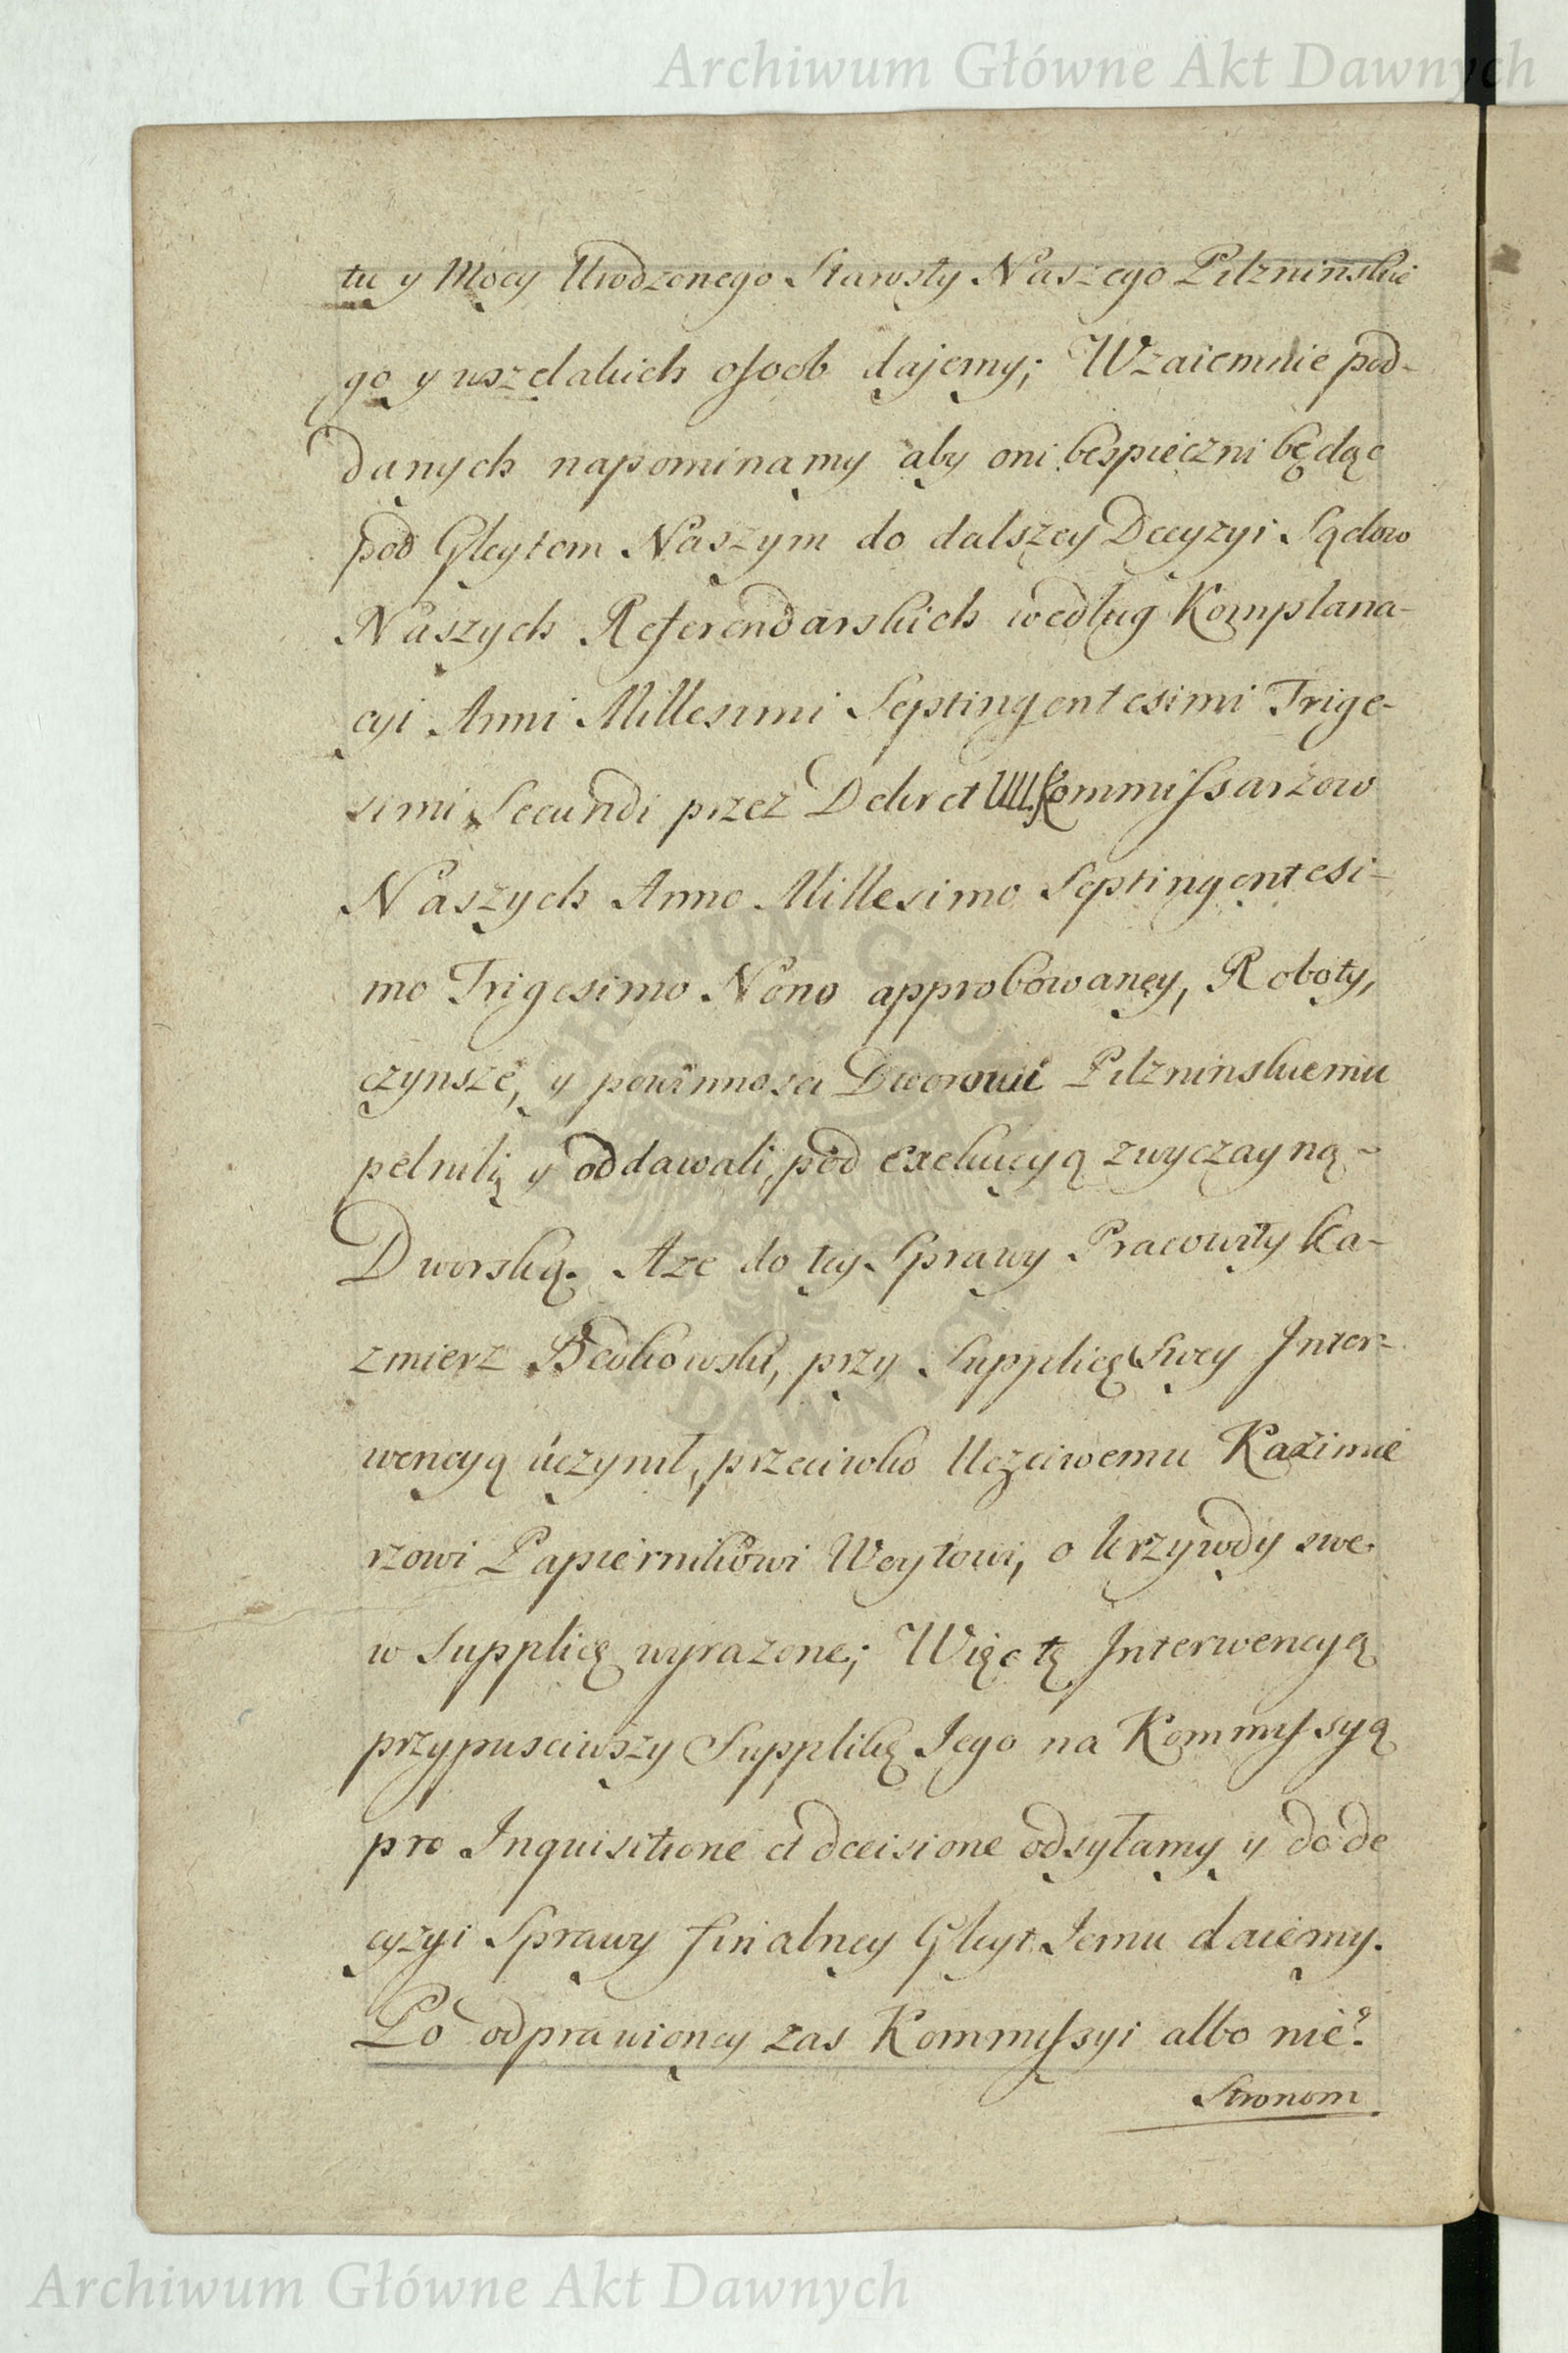 Archiwum Główne Akt Dawnych
tu y Mocy Urodzonego Starosty Naszego Pilzninskie
go y wszelakich osoob dajemy; Wzaiemnie pod-
danych napominamy aby oni bespieczni będąc
pod Gleytem Naszym do dalszey Decyzyi Sądow
Naszych Referendarskich według Komplana-
cyi Anni Millesimi Septingentesimi Trige-
simi Secundi przez Dekret UU. Kommissarzow
Naszych Anno Millesimo Septingentesi-
mo Trigesimo Nono approbowaney, Roboty,
czynsze, y powinnosci Dworowi Pilzninskiemu
pełnili y oddawali, pod exekucyą zwyczayną-
Dworską. Aze do tey Sprawy Pracowity Ka-
zmierz Bewkowski, przy Supplicę Swey Inter-
wencyą uczynił, przeciwko Uczciwemu Kazimie
rzowi Papiernikowi Woytowi, o krzywdy swe
w Supplicę wyrazone; Więc tę Interwencyą
przypusciwszy Supplikę Jego na Kommissyą
pro Inquisitione et decisione odsyłamy y do de
cyzyi Sprawy finalney Gleyt Jemu daiemy.
Po odprawioney zas Kommissyi albo nie?
Stronom
ARCHIWUM GŁÓWNE AKT DAWNYCH
Archiwum Główne Akt Dawnych